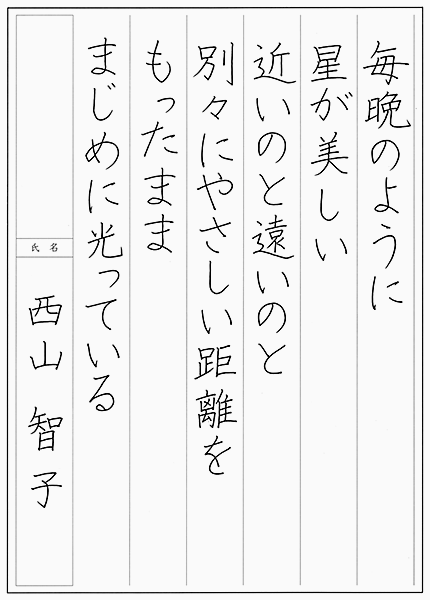 毎晩のように
星が美しい
近いのと遠いのと
別々にやさしい距離を
もったまま
まじめに光っている
氏名
西山 智子